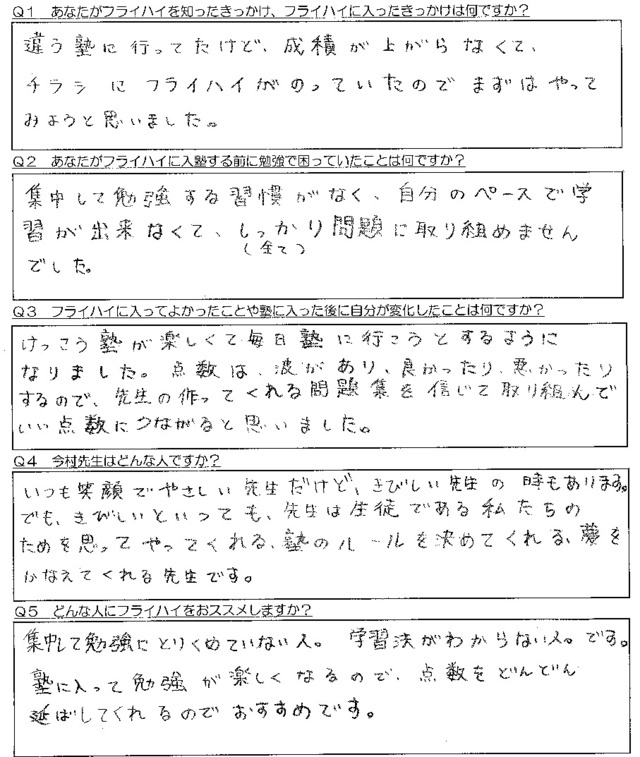 Q1 あなたがフライハイを知ったきっかけ、フライハイに入ったきっかけは何ですか?
違う塾に行ってたけど、成積が上がらなくて、
チラシにフライハイがのっていたのでまずはやって
みようと思いました。
Q2 あなたがフライハイに入塾する前に勉強で困っていたことは何ですか?
集中して勉強する習慣がなく、自分のペースで学
習が出来なくて、しっかり問題に取り組めません
(全て)
でした。
Q3 フライハイに入ってよかったことや塾に入った後に自分が変化したことは何ですか?
けっこう塾が楽しくて毎日塾に行こうとするように
なりました。点数は、波があり、良かったり、悪かったり
するので、先生の作ってくれる問題集を信じて取り組んで
いい点数につながると思いました。
Q4 今村先生はどんな人ですか?
いつも笑顔でやさしい先生だけど、きびしい先生の時もあります。
でも、きびしいといっても、先生は生徒である私たちの
ためを思ってやってくれる、塾のルールを決めてくれる、夢を
かなえてくれる先生です。
Q5 どんな人にフライハイをおススメしますか?
集中して勉強にとりくめていない人。学習法がわからない人。です。
塾に入って勉強が楽しくなるので、点数をどんどん
延ばしてくれるのでおすすめです。